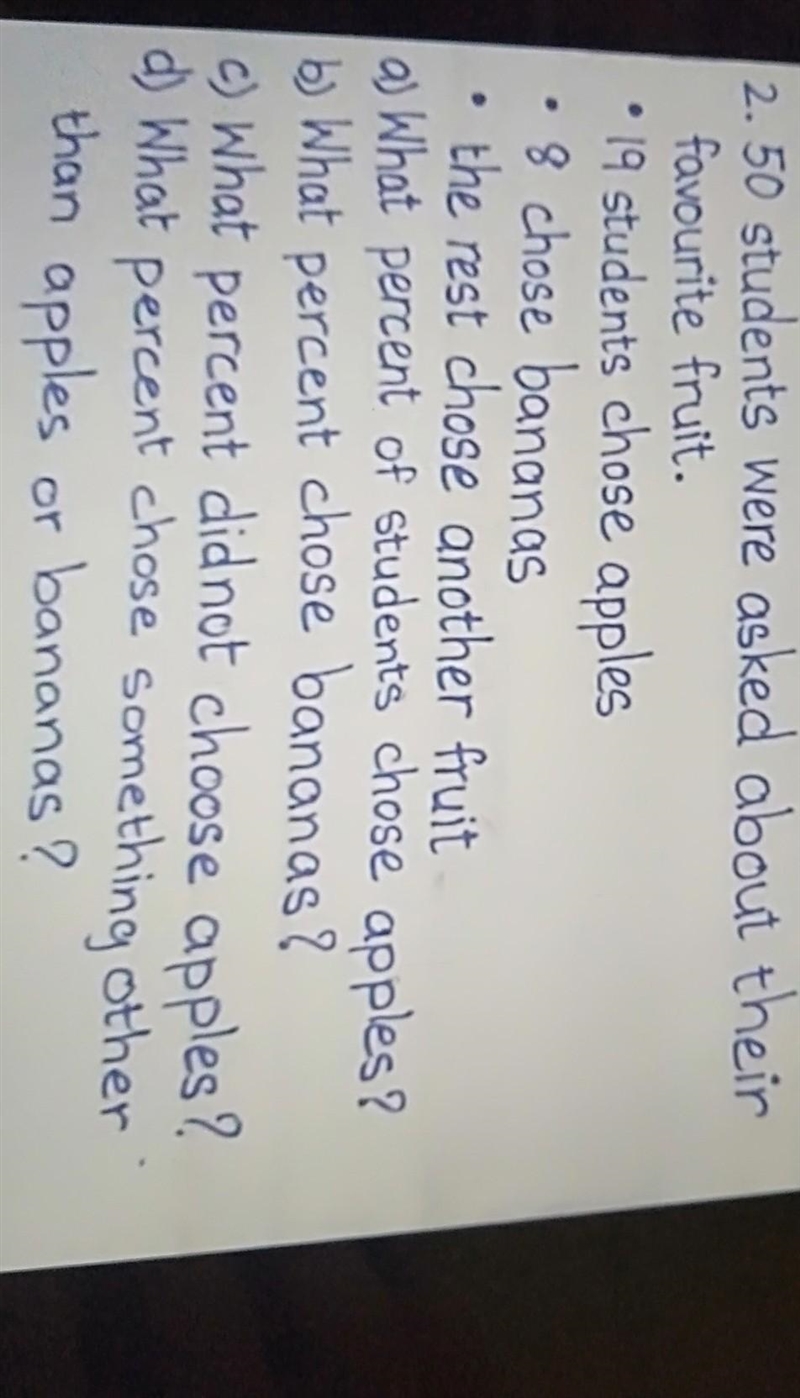 2. 50 students were asked about their
favourite fruit.
• 19 students chose apples
• 8 chose bananas
• the rest chose another fruit
a) What percent of students chose apples?
b) What percent chose bananas?
c) What percent did not choose apples?
d) What percent chose something other
than apples or bananas?